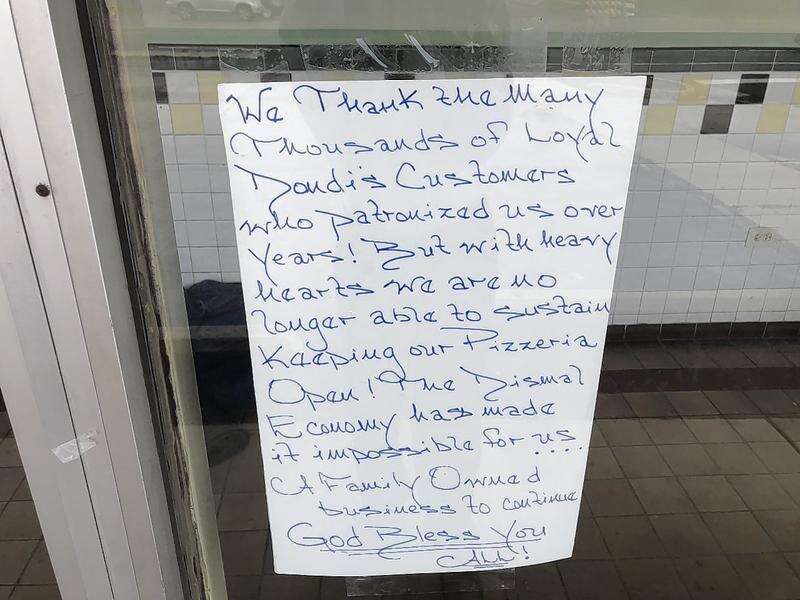 We Thank the Many
Thousands of Loyal
Dondi's Customers
who patronized us over
Years! But with heavy
hearts we are no
longer able to sustain
Keeping our Pizzeria
Open! The Dismal
Economy has made
it impossible for us....
A Family Owned
business to continue
God Bless You
All!